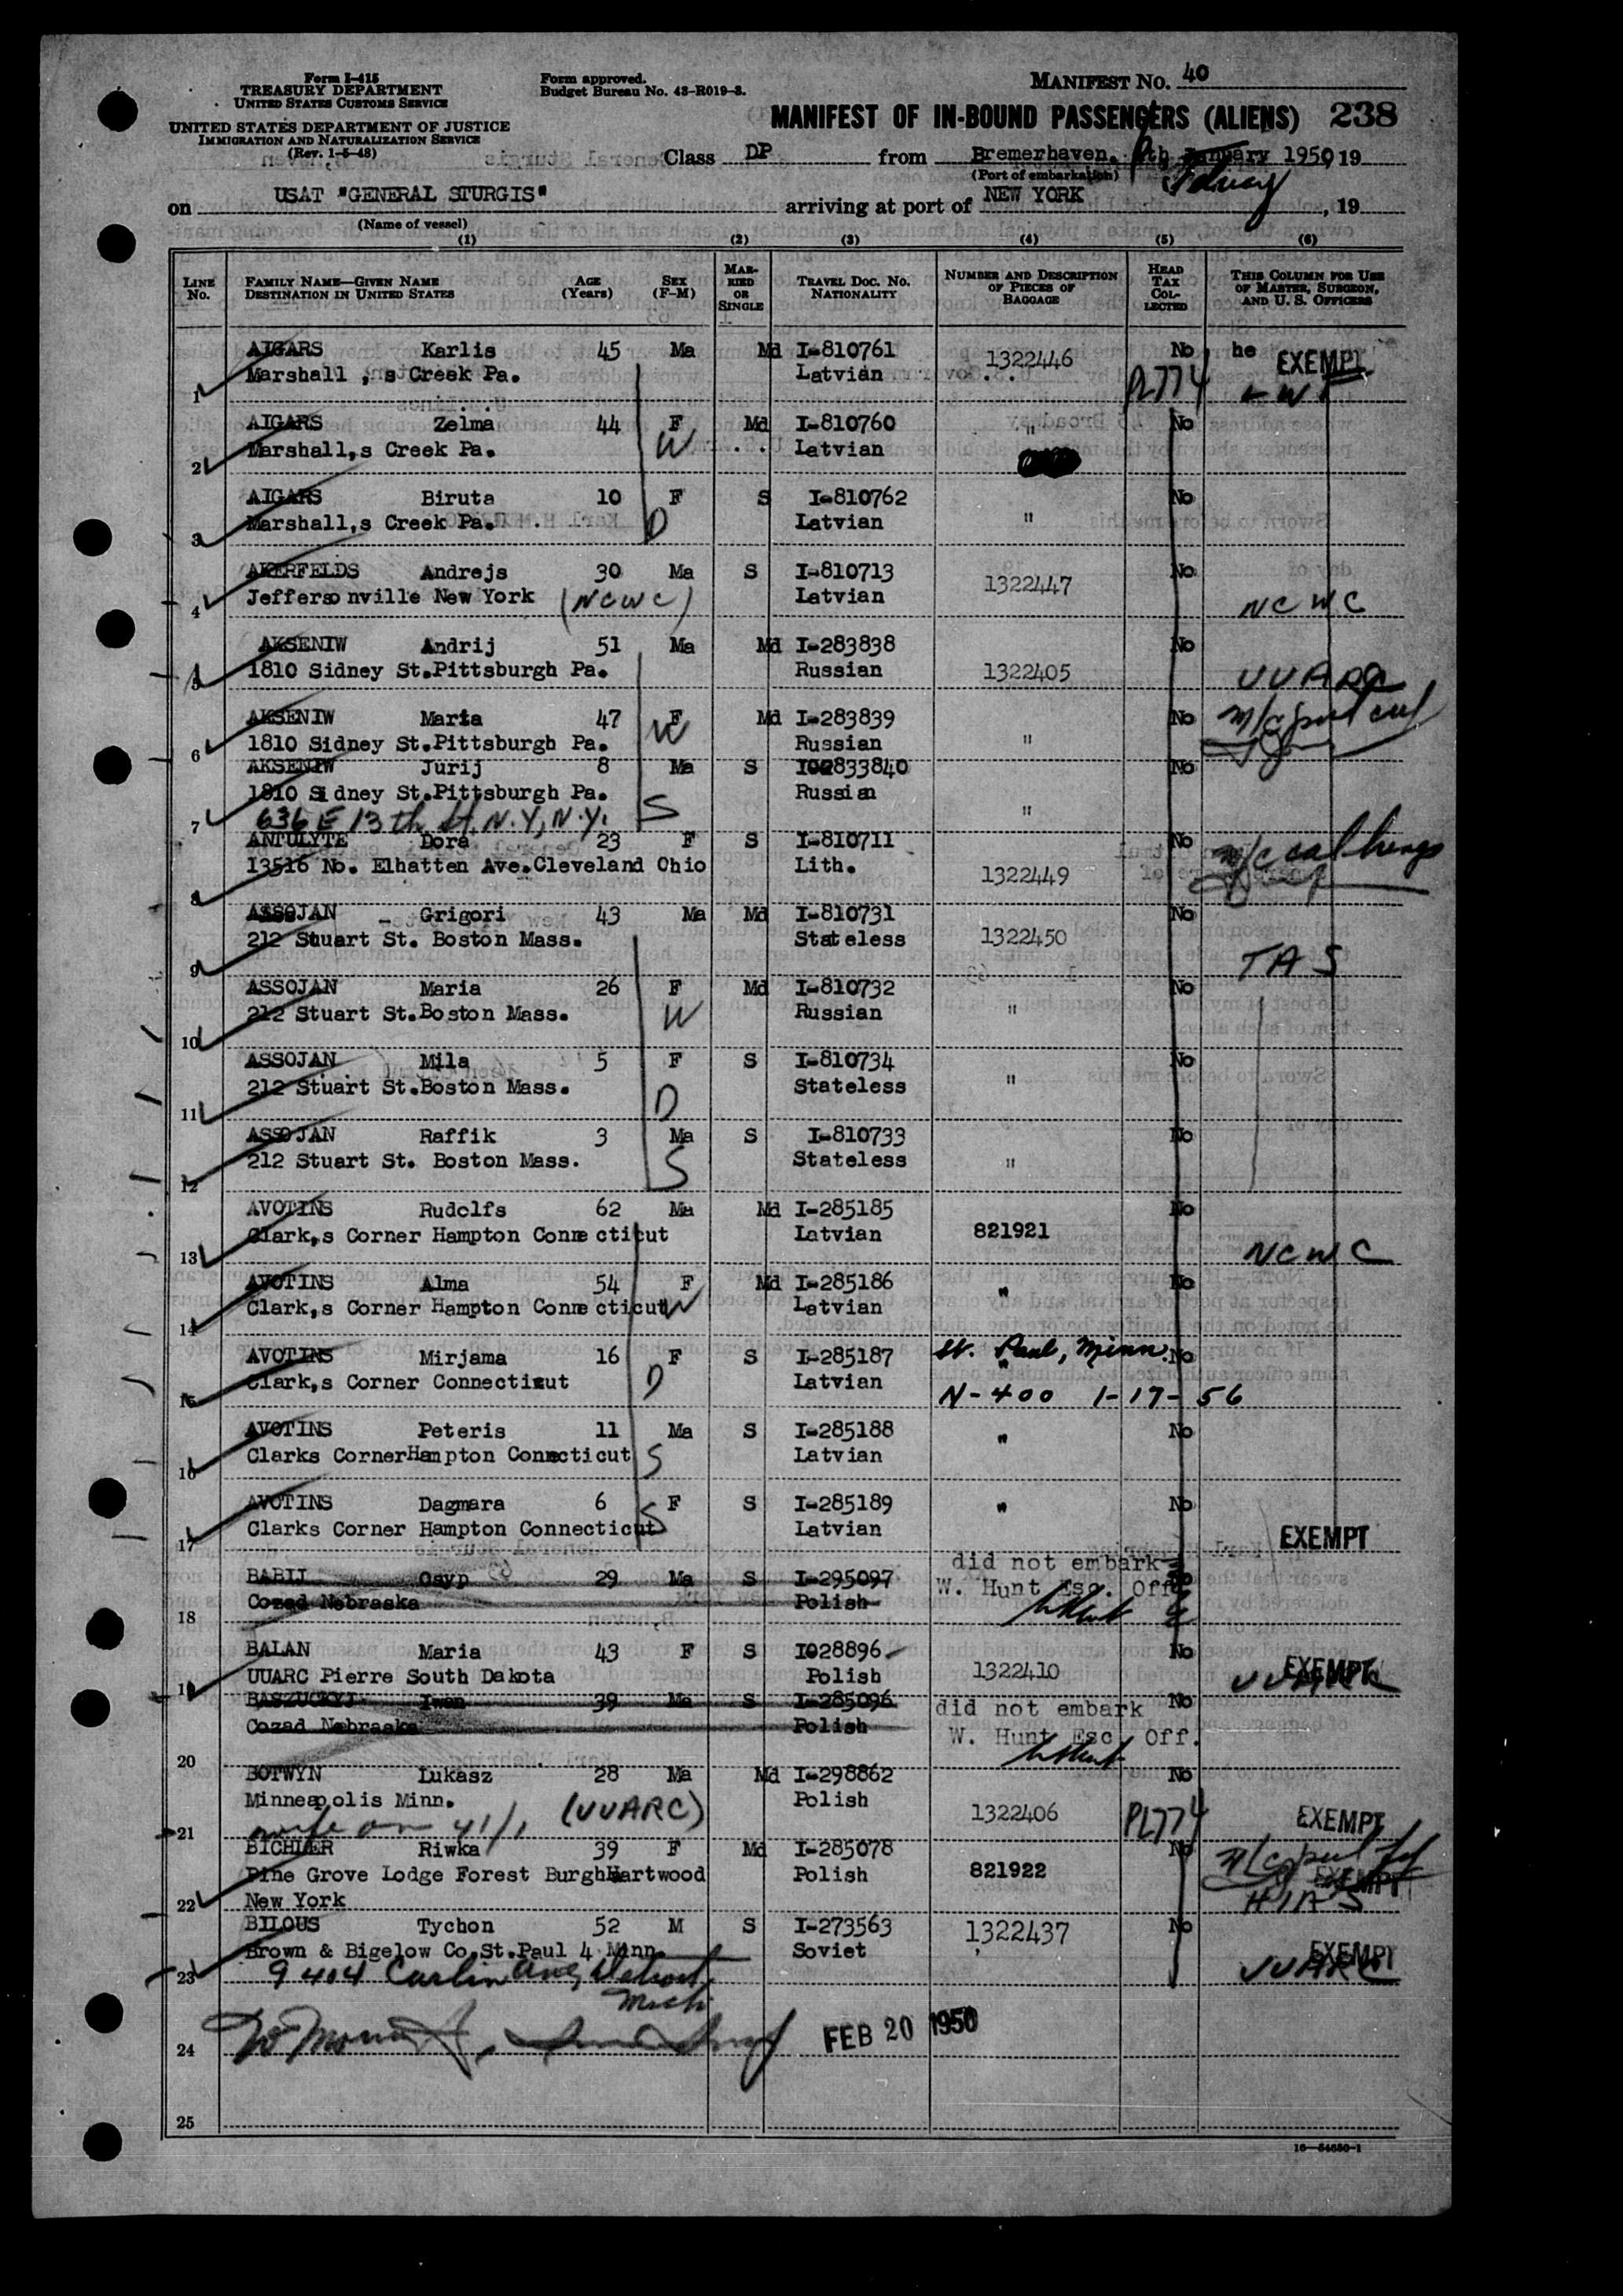 Form I-415
TREASURY DEPARTMENT
UNITED STATES CUSTOMS SERVICE
UNITED STATES DEPARTMENT OF JUSTICE
IMMIGRATION AND NATURALIZATION SERVICE
(Rev. 1-5-48)
Form approved.
Budget Bureau No. 43-R019-3.
MANIFEST No. 40
MANIFEST OF IN-BOUND PASSENGERS (ALIENS) 238
Class DP from Bremerhaven, January 1950, 19
(Port of embarkation)
on USAT "GENERAL STURGIS" arriving at port of NEW YORK, 19
(Name of vessel)
(1) (2) (3) (4) (5) (6)
LINE No. FAMILY NAME—GIVEN NAME DESTINATION IN UNITED STATES AGE (Years) SEX (F-M) MARRIED OR SINGLE TRAVEL DOC. NO. NATIONALITY NUMBER AND DESCRIPTION OF PIECES OF BAGGAGE HEAD TAX COLLECTED THIS COLUMN FOR USE OF MASTER, SURGEON, AND U. S. OFFICERS
AIGARS Karlis 45 Ma Md I-810761 1322446 No he EXEMPT
1 Marshall ,s Creek Pa. Latvian PL774 LWF
AIGARS Zelma 44 F Md I-810760 " No
2 Marshall,s Creek Pa. W Latvian
AIGARS Biruta 10 F S I-810762 No
3 Marshall,s Creek Pa. D Latvian "
AKERFELDS Andrejs 30 Ma S I-810713 1322447 No
4 Jeffersonville New York (NCWC) Latvian NCWC
AKSENIW Andrij 51 Ma Md I-283838 No
5 1810 Sidney St.Pittsburgh Pa. Russian 1322405 UUARC
AKSENIW Maria 47 F Md I-283839 No
6 1810 Sidney St.Pittsburgh Pa. W Russian "
AKSENIW Jurij 8 Ma S I002833840 No
1810 Sidney St.Pittsburgh Pa. Russian
7 636 E 13th St. N.Y, N.Y. S "
ANTULYTE Dora 23 F S I-810711 No
8 13516 No. Elhatten Ave.Cleveland Ohio Lith. 1322449
ASSOJAN - Grigori 43 Ma Md I-810731 No
9 212 Stuart St. Boston Mass. Stateless 1322450 TAS
ASSOJAN Maria 26 F Md I-810732 No
10 212 Stuart St.Boston Mass. W Russian "
ASSOJAN Mila 5 F S I-810734 No
11 212 Stuart St.Boston Mass. D Stateless "
ASSOJAN Raffik 3 Ma S I-810733 No
12 212 Stuart St. Boston Mass. S Stateless "
AVOTINS Rudolfs 62 Ma Md I-285185 No
13 Clark,s Corner Hampton Connecticut Latvian 821921 NCWC
AVOTINS Alma 54 F Md I-285186 " No
14 Clark,s Corner Hampton Connecticut W Latvian
AVOTINS Mirjama 16 F S I-285187 St. Paul, Minn. " No
15 Clark,s Corner Connecticut D Latvian N-400 1-17-56
AVOTINS Peteris 11 Ma S I-285188 " No
16 Clarks CornerHampton Connecticut S Latvian
AVOTINS Dagmara 6 F S I-285189 " No
17 Clarks Corner Hampton Connecticut S Latvian EXEMPT
BABIJ Osyp 29 Ma S I-295097 did not embark No
18 Cozad Nebraska Polish W. Hunt Esc. Off.
BALAN Maria 43 F S I028896 No
19 UUARC Pierre South Dakota Polish 1322410 EXEMPT UUARC
BASZUCKYJ Iwan 39 Ma S I-285096 did not embark No
20 Cozad Nebraska Polish W. Hunt Esc. Off.
BOTWYN Lukasz 28 Ma Md I-298862 No
Minneapolis Minn. (UUARC) Polish 1322406 PL774 EXEMPT
21 wife on 41/1
BICHLER Riwka 39 F Md I-285078 No
Pine Grove Lodge Forest BurghHartwood Polish 821922 EXEMPT
22 New York HIAS
BILOUS Tychon 52 M S I-273563 1322437 No
Brown & Bigelow Co.St.Paul 4 Minn. Soviet EXEMPT UUARC
23 9404 Carlin Ave, Detroit, Mich.
24 FEB 20 1950
25
16—54650-1